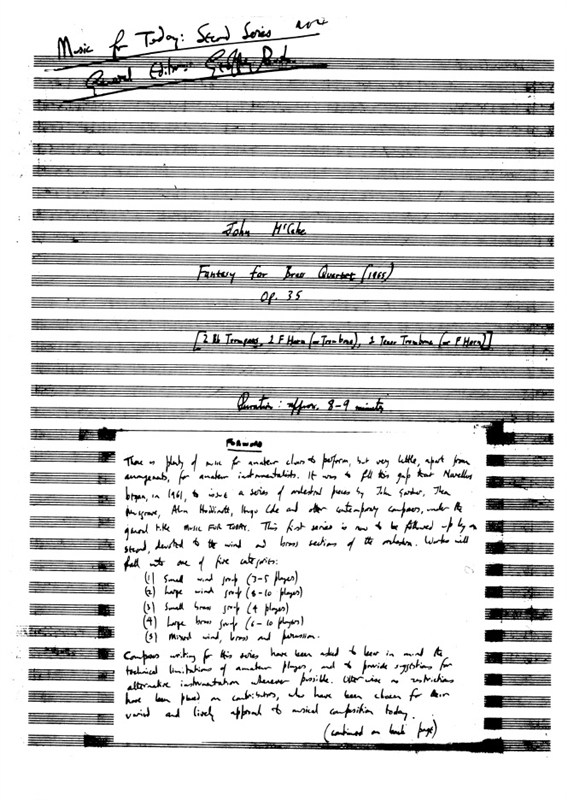 Music for Today: Second Series
General Editor: Geoffrey
John McCabe
Fantasy for Brass Quartet (1965)
Op. 35
[2 Bb Trumpets, 1 F Horn (or Trombone), 1 Tenor Trombone (or F Horn)]
Duration: approx. 8-9 minutes
FOREWORD
There is plenty of music for amateur choirs to perform, but very little, apart from
arrangements, for amateur instrumentalists. It was to fill this gap that Novellos
began, in 1961, to issue a series of orchestral pieces by John Gardner, Thea
Musgrave, Alun Hoddinott, Hugo Cole and other contemporary composers, under the
general title MUSIC FOR TODAY. This first series is now to be followed up by a
second, devoted to the wind and brass sections of the orchestra. Works will
fall into one of five categories:
(1) Small wind group (3-5 players)
(2) Large wind group (8-10 players)
(3) Small brass group (4 players)
(4) Large brass group (6-10 players)
(5) Mixed wind, brass and percussion.
Composers writing for this series have been asked to bear in mind the
technical limitations of amateur players, and to provide suggestions for
alternative instrumentation wherever possible. Otherwise no restrictions
have been placed on contributors, who have been chosen for their
varied and lively approach to musical composition today.
(continued on back page)